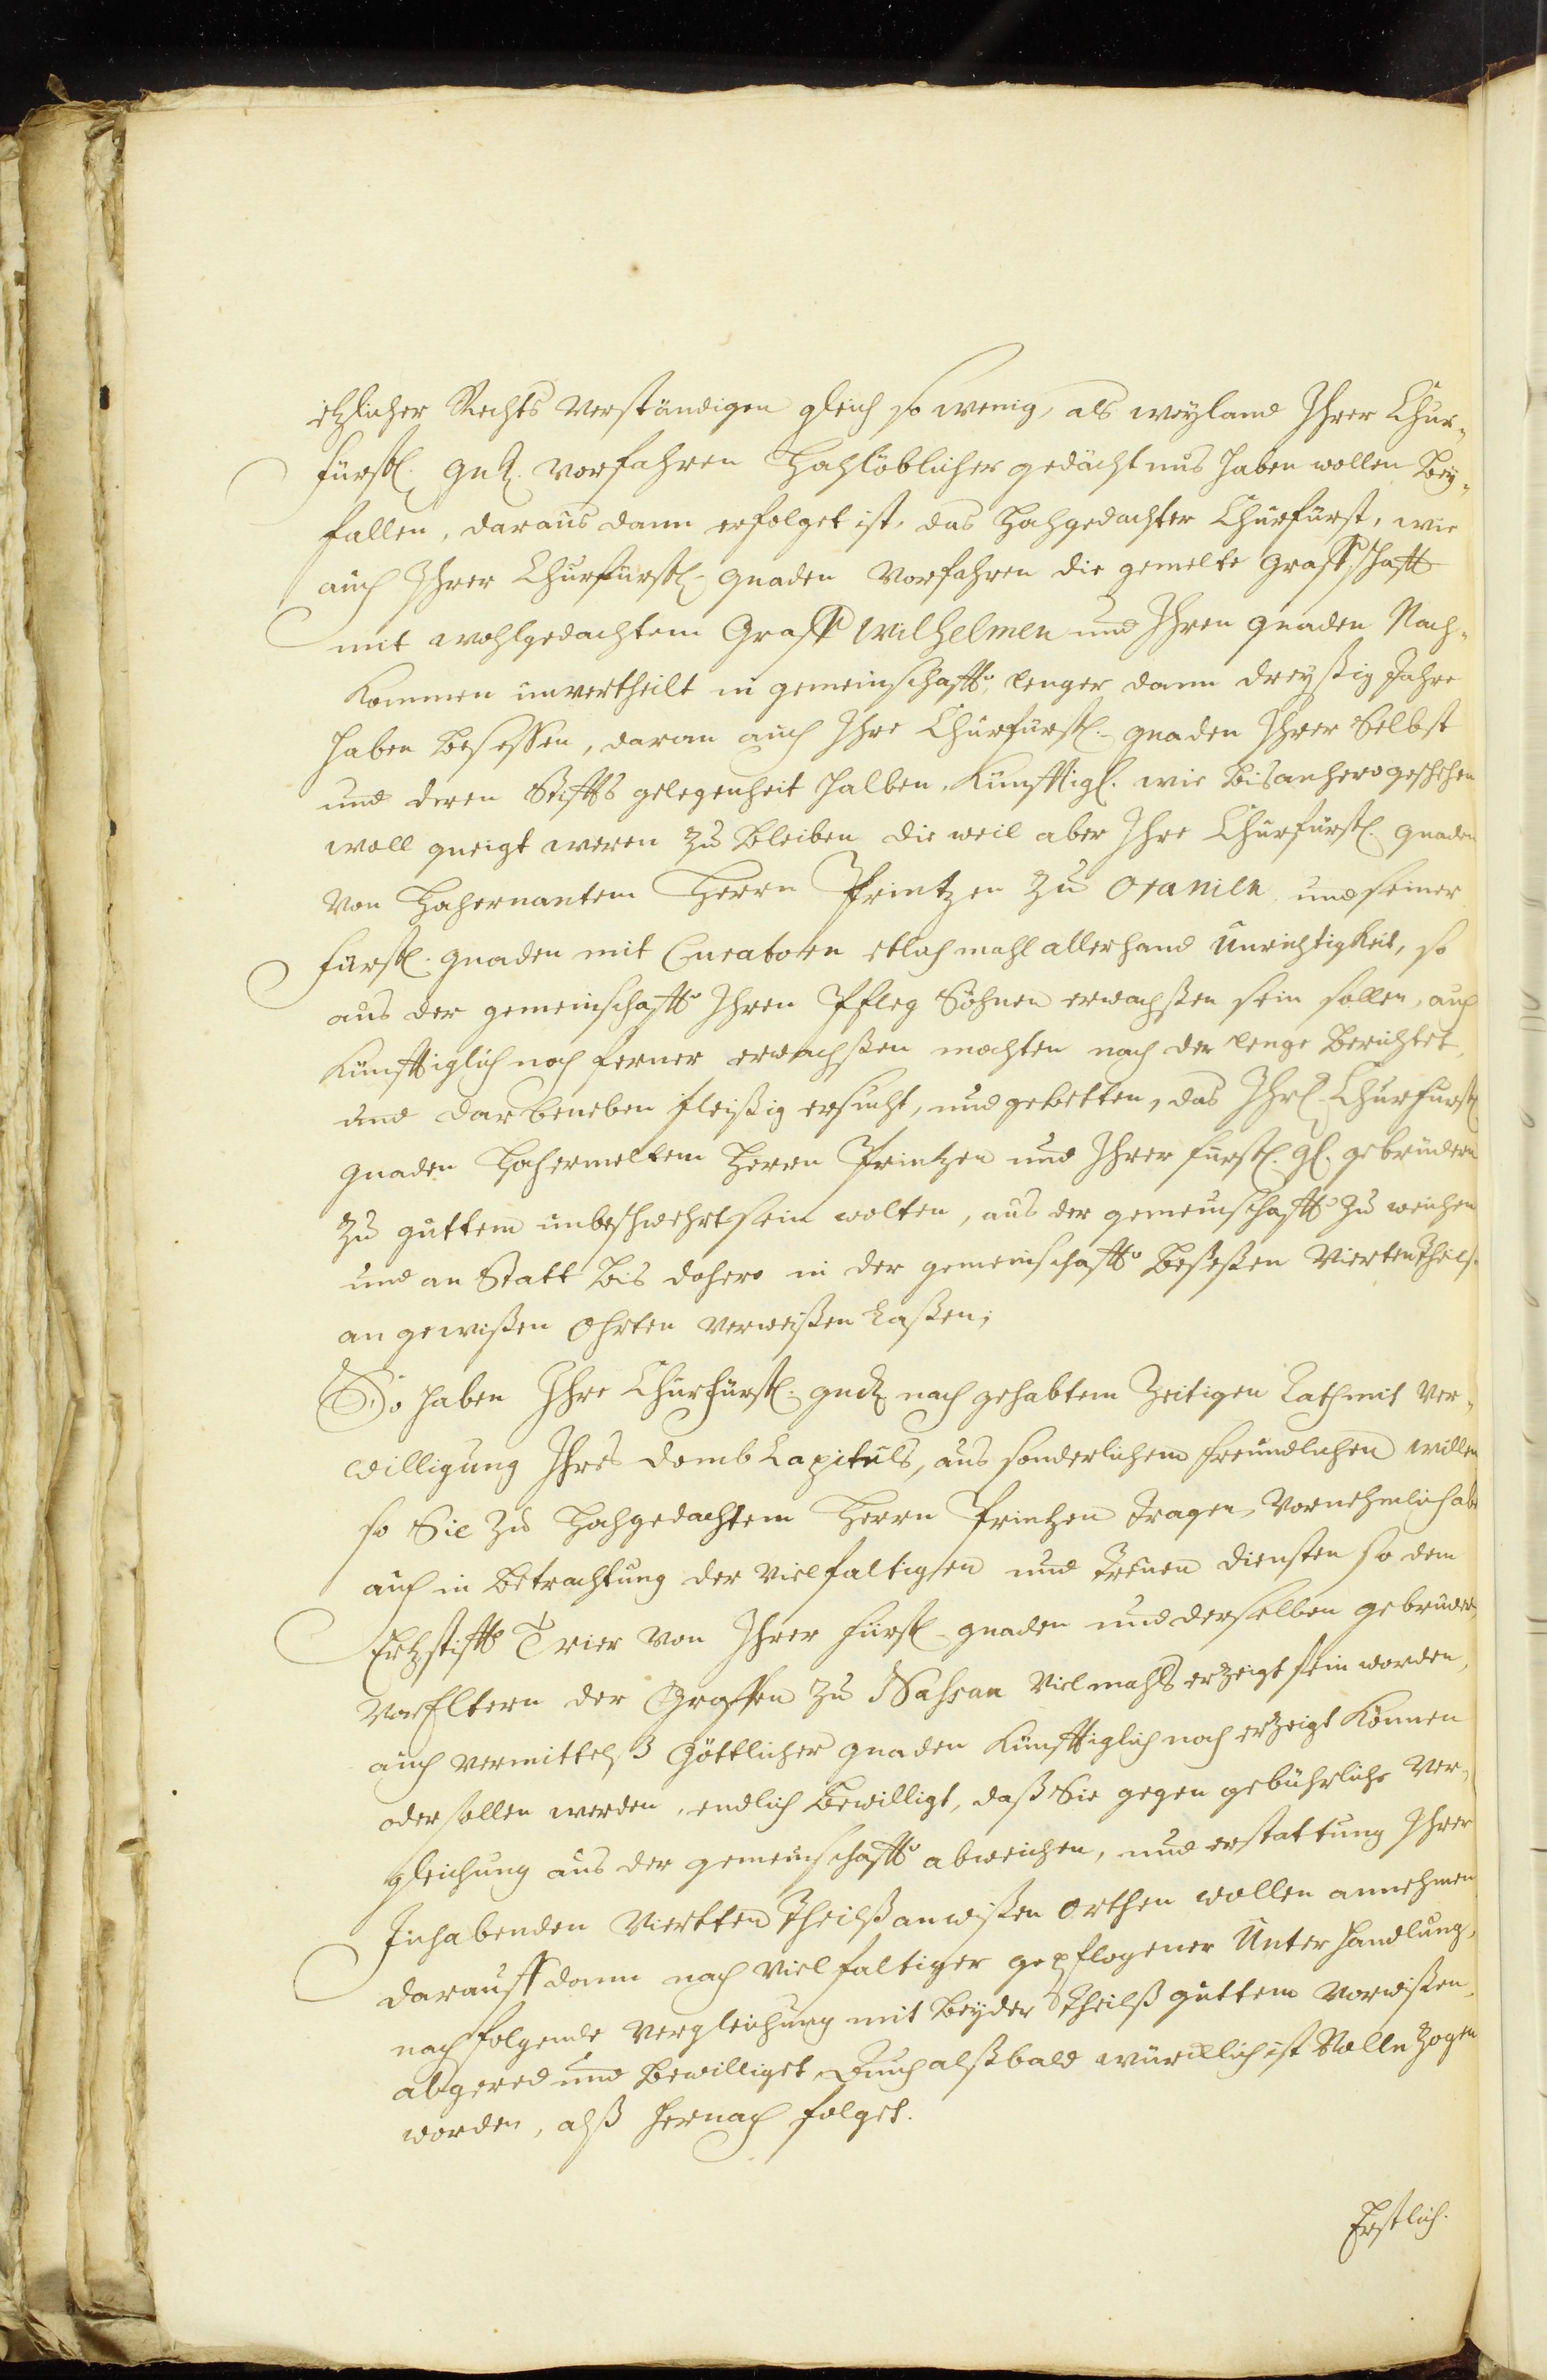 etzlicher Rechts Verständigen gleich so wenig, als weyland Ihrer Chur-
fürstl. gnd. Vorfahren Hochlöblicher gedächtnus haben wollen bey-
fallen, daraus dann erfolget ist, das Hochgedachter Churfürst, wie
auch Ihrer Churfürstl. gnaden Vorfahren die gemelte Graffschafft
mit wohlgedachtem Graff Wilhelmen und Ihren gnaden Nach-
kommen unvertheilt in gemeinschafft, lenger dann dreyßig Jahre
haben besessen, daran auch Ihre Churfürstl. gnaden Ihrer Selbst
und deren Stiffts gelegenheit halben, künfftigl. wie bisanhero geschehen
woll gneigt weren zu bleiben die weil aber Ihre Churfürstl. gnaden
von Hochernantem Herrn Printzen zu Oranien und seiner
fürstl. gnaden mit Curatorn etlich mahl allerhand Unrichtigkeit, so
aus der gemeinschafft Ihren Pfleg Söhnen erwachßen sein sollen, auch
künfftiglich noch ferner erwachßen mochten nach der lenge berichtet,
und darbeneben fleißig ersucht, und gebetten, das Ihre Churfürstl.
gnaden Hochermeltem Herrn Printzen und Ihrer fürstl. gl. gebrüdern
zu guttem unbeschwehrt sein wolten, aus der gemeinschafft zu weichen
und an Statt bis dahero in der gemeinschafft beseßen Vierten theils
an gewißen Ohrten verweißen laßen;
So haben Ihre Churfürstl. gnd. nach gehabtem Zeitigen Rath mit Ver-
willigung Ihres Domb Capituls, aus sonderlichem freundlichen willen
so Sie zu Hochgedachtem Herrn Printzen tragen, Vornehmlich aber
auch in betrachtung der Vielfaltigen und treuen diensten so dem
Ertzstifft Trier von Ihrer fürstl. gnaden und derselben gebrüder,
VorEltern der Graffen zu Nassau Vielmahls erzeigt sein worden,
auch vermittelß Göttlicher gnaden künfftiglich noch erzeigt können
oder sollen werden, endlich bewilligt, daß Sie gegen gebührliche Ver-
gleichung aus der gemeinschafft abweichen, und erstattung Ihrer
Inhabenden Viertten theilß an wißen Orthen wollen annehmen
darauff dann nach Vielfaltiger gepflogener Unterhandlung,
nachfolgende Vergleichung mit beyder Theilß guttem Vorwißen,
abgered und bewilliget, Auch alßbald würcklich ist Vollnzogen
worden, alß hernach folget.
Erstlich.